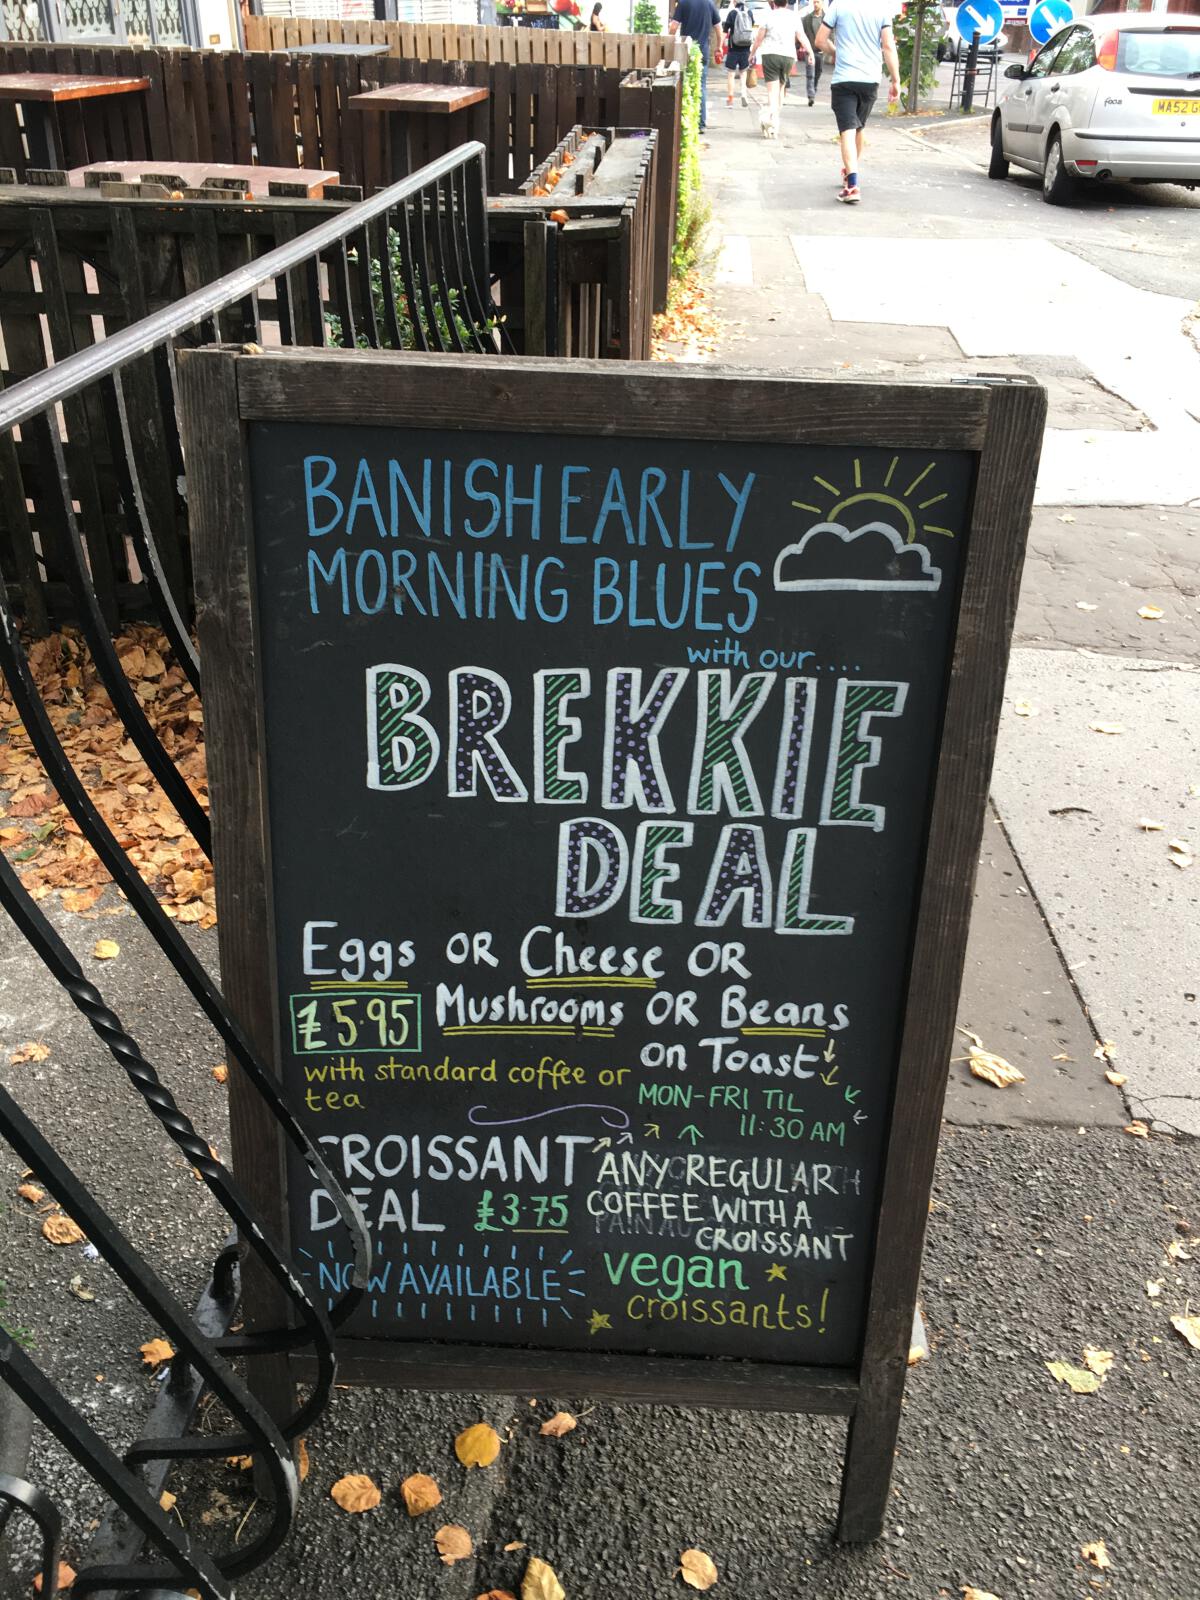 BANISH EARLY
MORNING BLUES
with our....
BREKKIE
DEAL
Eggs OR Cheese OR
£5.95 Mushrooms OR Beans
on Toast
with standard coffee or
tea
MON-FRI TIL
11:30 AM
CROISSANT
DEAL £3.75
ANY REGULAR
COFFEE WITH A
CROISSANT
NOW AVAILABLE
vegan
croissants!
focus
MA52 G